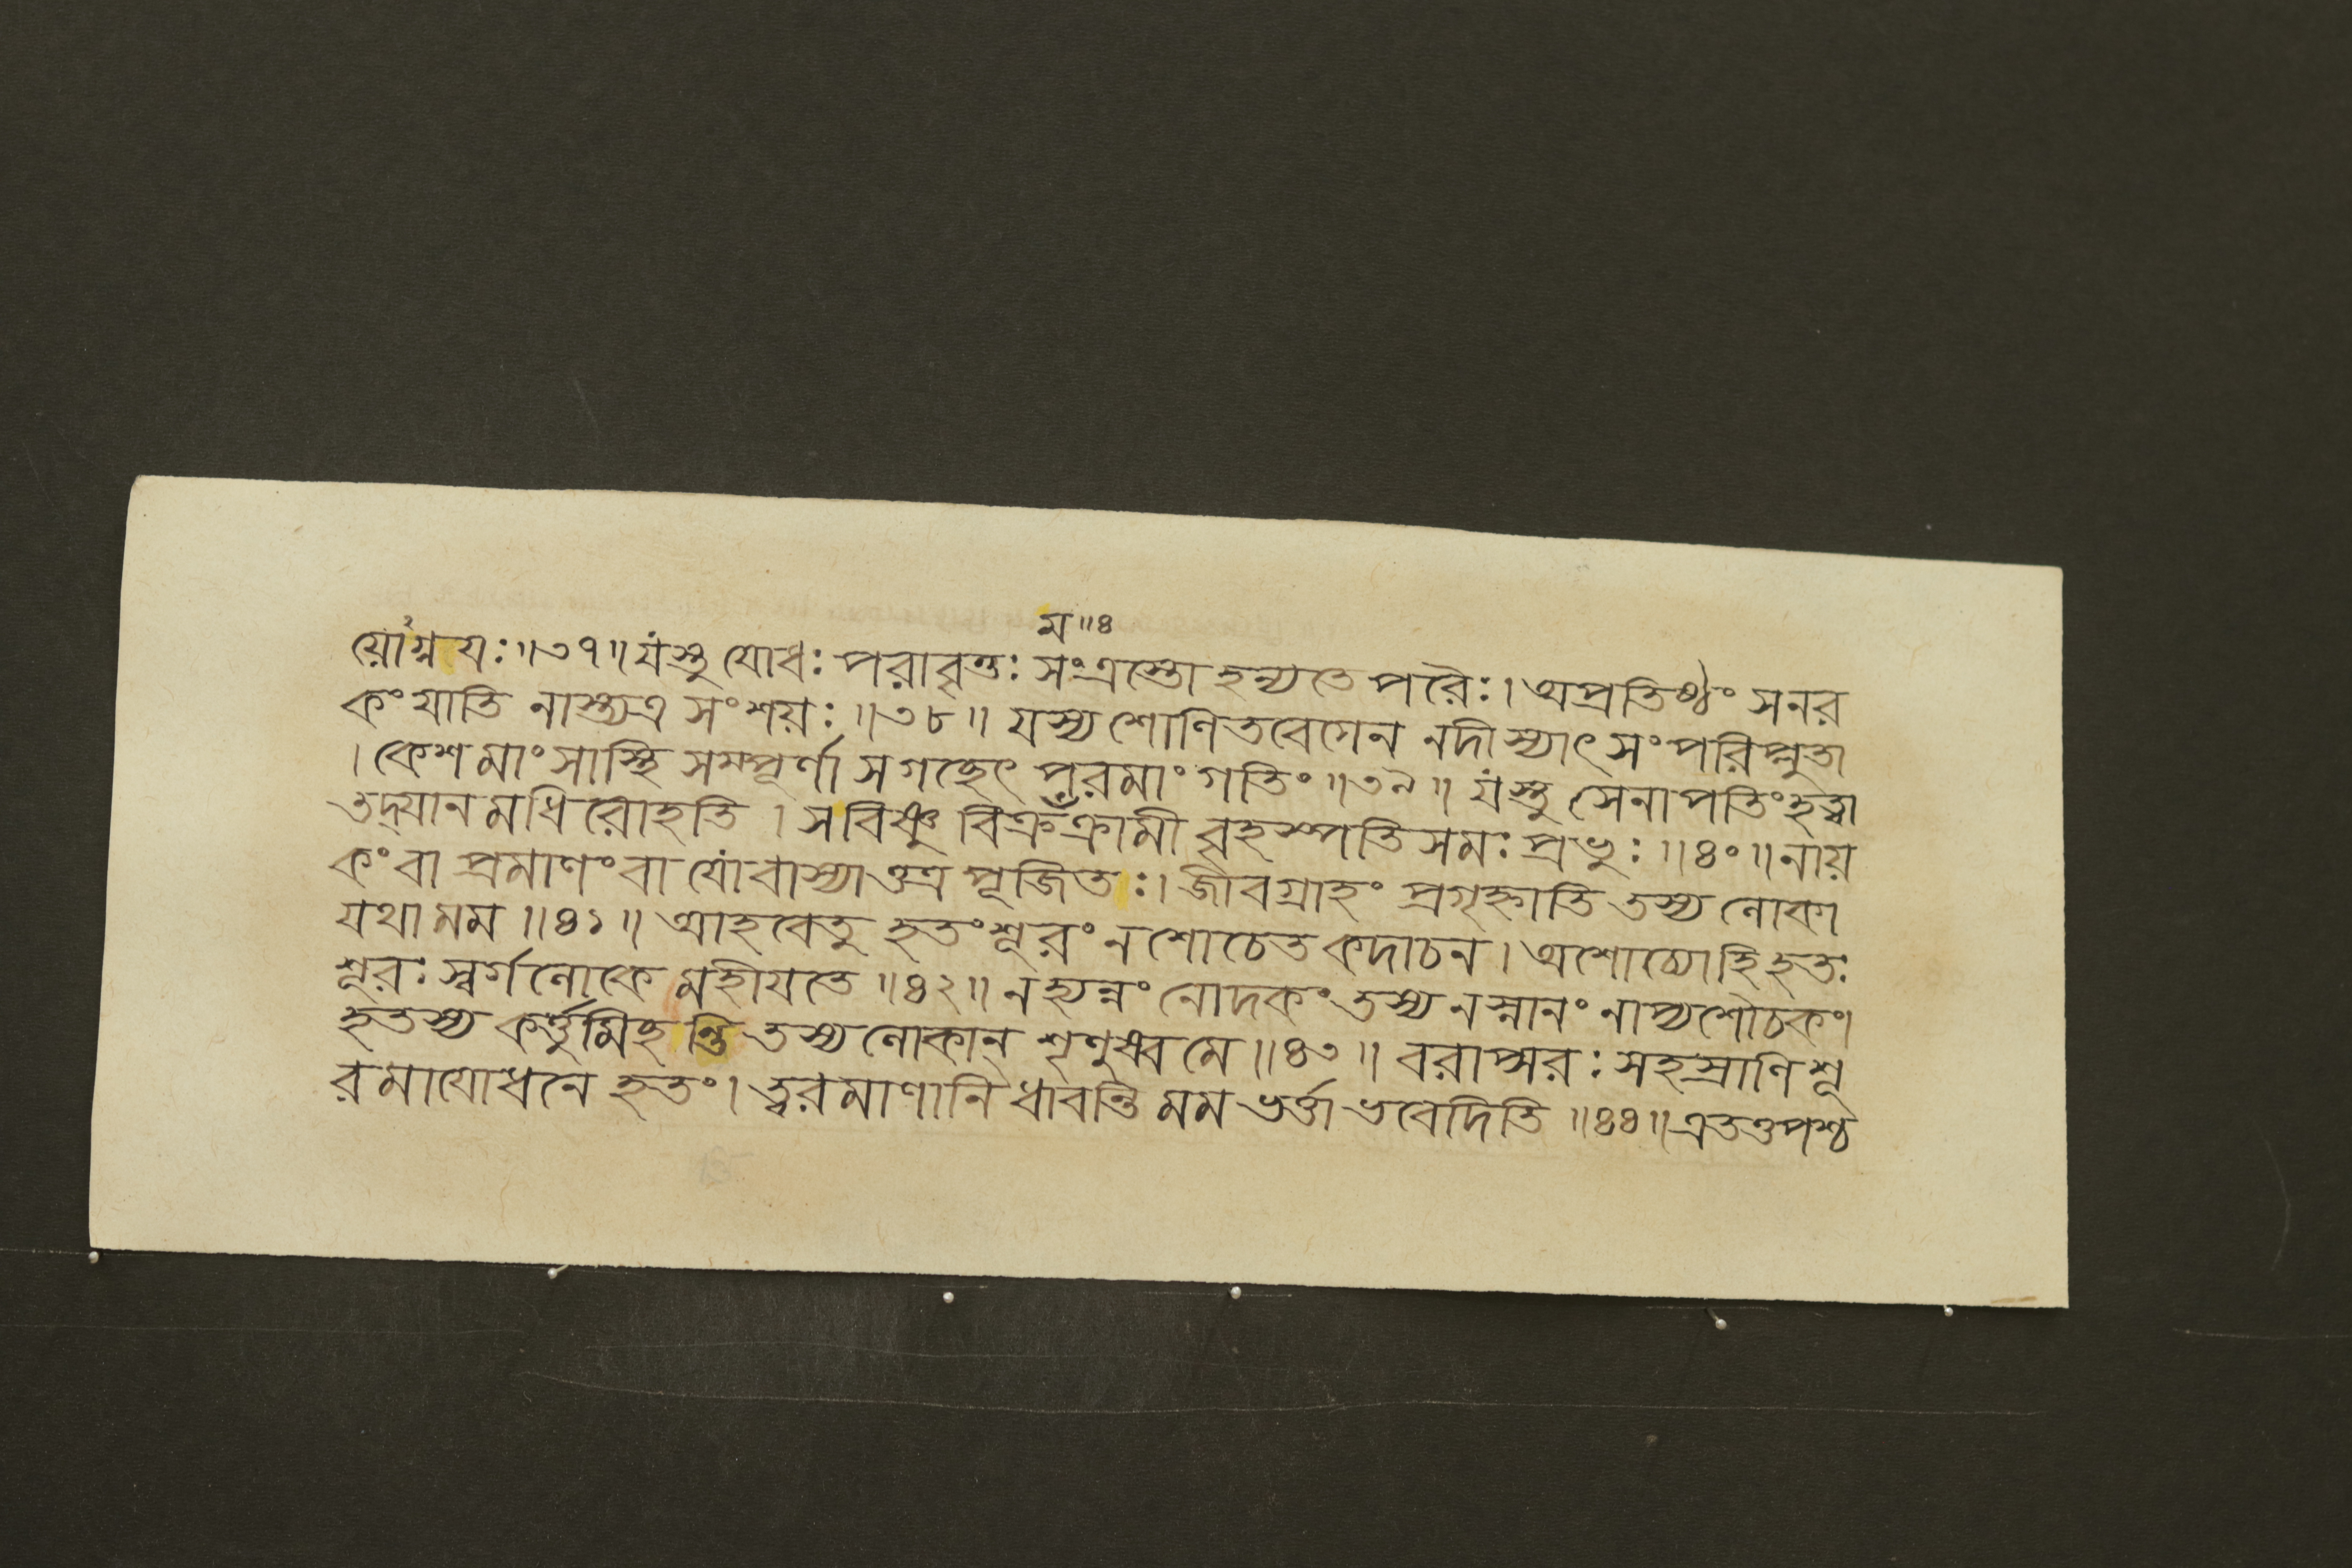 ম॥৪
য়োগ্নযঃ॥৩৭॥যস্তু যোধঃ পরাবৃত্তঃ সংত্রস্তো হন্যতে পরৈঃ। অপ্রতিষ্ঠং সনর
কং যাতি নাস্ত্যত্র সংশয়ঃ॥৩৮॥ যস্য শোণিতবেগেন নদীস্যাৎ সংপরিপ্লুতা
। কেশমাংসাস্থি সম্পূর্ণা সগচ্ছেৎ পরমাং গতিং॥৩৯॥ যস্তু সেনাপতিংহত্বা
তদ্যানমধিরোহতি। সবিষ্ণু বিক্রঁক্রামী বৃহস্পতিসমঃ প্রভুঃ॥৪০॥নায়
কংবা প্রমাণংবা যোবাস্যাত্তত্র পূজিতঃ। জীবগ্রাহং প্রগৃহ্নাতি তস্য লোকা
যথা মম॥৪১॥ আহবেতু হতংশূরং ন শোচেত কদাচন। অশোচ্যোহি হতঃ
শূরঃ স্বর্গলোকে মহীযতে॥৪২॥ নহ্যন্নং নোদকং তস্য নস্নানং নাপ্যশৌচকং।
হতস্য কর্ত্তুমিহন্তি তস্য লোকান্ শৃণুষ্ব মে॥৪৩॥ বরাপ্সরঃ সহস্রাণি শূ
রমাযোধনে হতং। ত্বরমাণানি ধাবন্তি মম ভর্ত্তা ভবেদিতি॥৪৪॥এতত্তপশ্চ